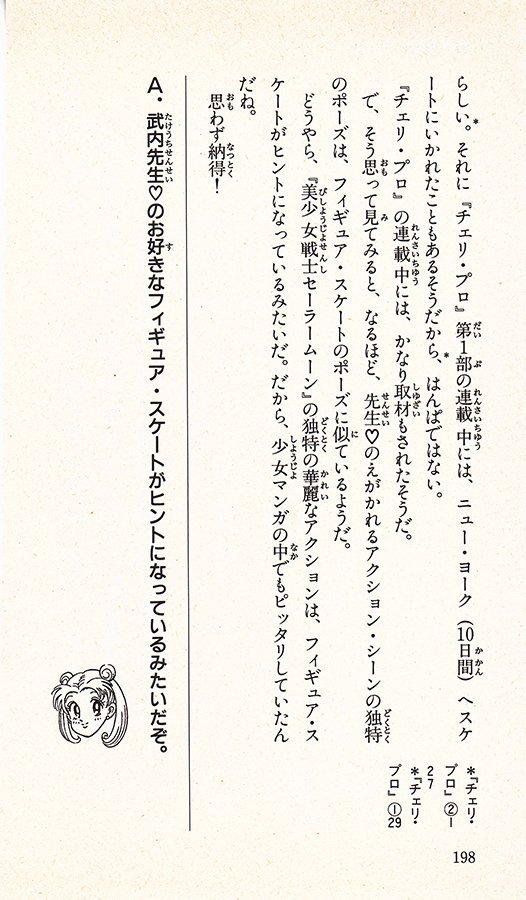 らしい。それに『チェリ・プロ』第1部の連載中には、ニュー・ヨーク(10日間)へスケ
ートにいかれたこともあるそうだから、はんぱではない。
『チェリ・プロ』の連載中には、かなり取材もされたそうだ。
で、そう思って見てみると、なるほど、先生♡のえがかれるアクション・シーンの独特
のポーズは、フィギュア・スケートのポーズに似ているようだ。
どうやら、『美少女戦士セーラームーン』の独特の華麗なアクションは、フィギュア・ス
ケートがヒントになっているみたいだ。だから、少女マンガの中でもピッタリしていたん
だね。
思わず納得!
A・武内先生♡のお好きなフィギュア・スケートがヒントになっているみたいだぞ。
*『チェリ・
プロ』②ー
27
*『チェリ・
プロ』①29
198